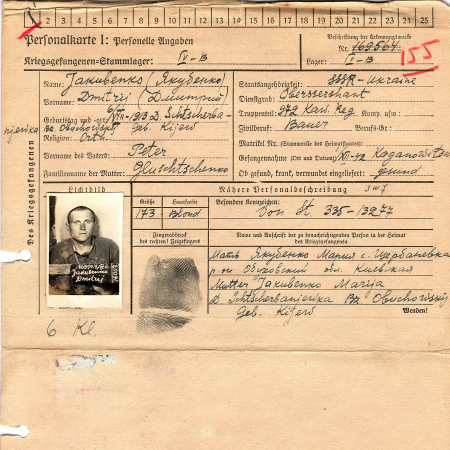 1 2 3 4 5 6 7 8 9 10 11 12 13 14 15 16 17 18 19 20 21 22 23 24 25
Personalkarte I: Personelle Angaben
Kriegsgefangenen-Stammlager: IV-B
Beschriftung der Erkennungsmarke
Nr. 169564
Lager: IV-B
155
Des Kriegsgefangenen
Name: Jakubenko (Якубенко)
Vorname: Dmitrij (Дмитрий)
Geburtstag und -ort: 1913 D. Schtscherba-
njenika Bz. Obuchowskij Geb. Kijew
Religion: Orth.
Vorname des Vaters: Peter
Familienname der Mutter: Gluschtschenko
Staatsangehörigkeit: SSSR-Ukraine
Dienstgrad: Oberssershant
Truppenteil: 972 Kav. Reg Komp. usw.:
Zivilberuf: Bauer Berufs-Gr.:
Matrikel Nr. (Stammrolle des Heimatstaates):
Gefangennahme (Ort und Datum):
Ob gesund, krank, verwundet eingeliefert: gesund
Lichtbild
Nähere Personalbeschreibung
Größe Haarfarbe Besondere Kennzeichen:
173 Blond Von St. 335-13277
Fingerabdruck
des rechten! Zeigefingers
Name und Anschrift der zu benachrichtigenden Person in der Heimat
des Kriegsgefangenen
Мать Якубенко Мария с. Щербаневка
р-он Обуховский обл. Киевская
Mutter Jakubenko Marija
D. Schtscherbanjenika Bz. Obuchowskij
Geb. Kijew
Wenden!
Jakubenko
Dmitrij
6 Kl.